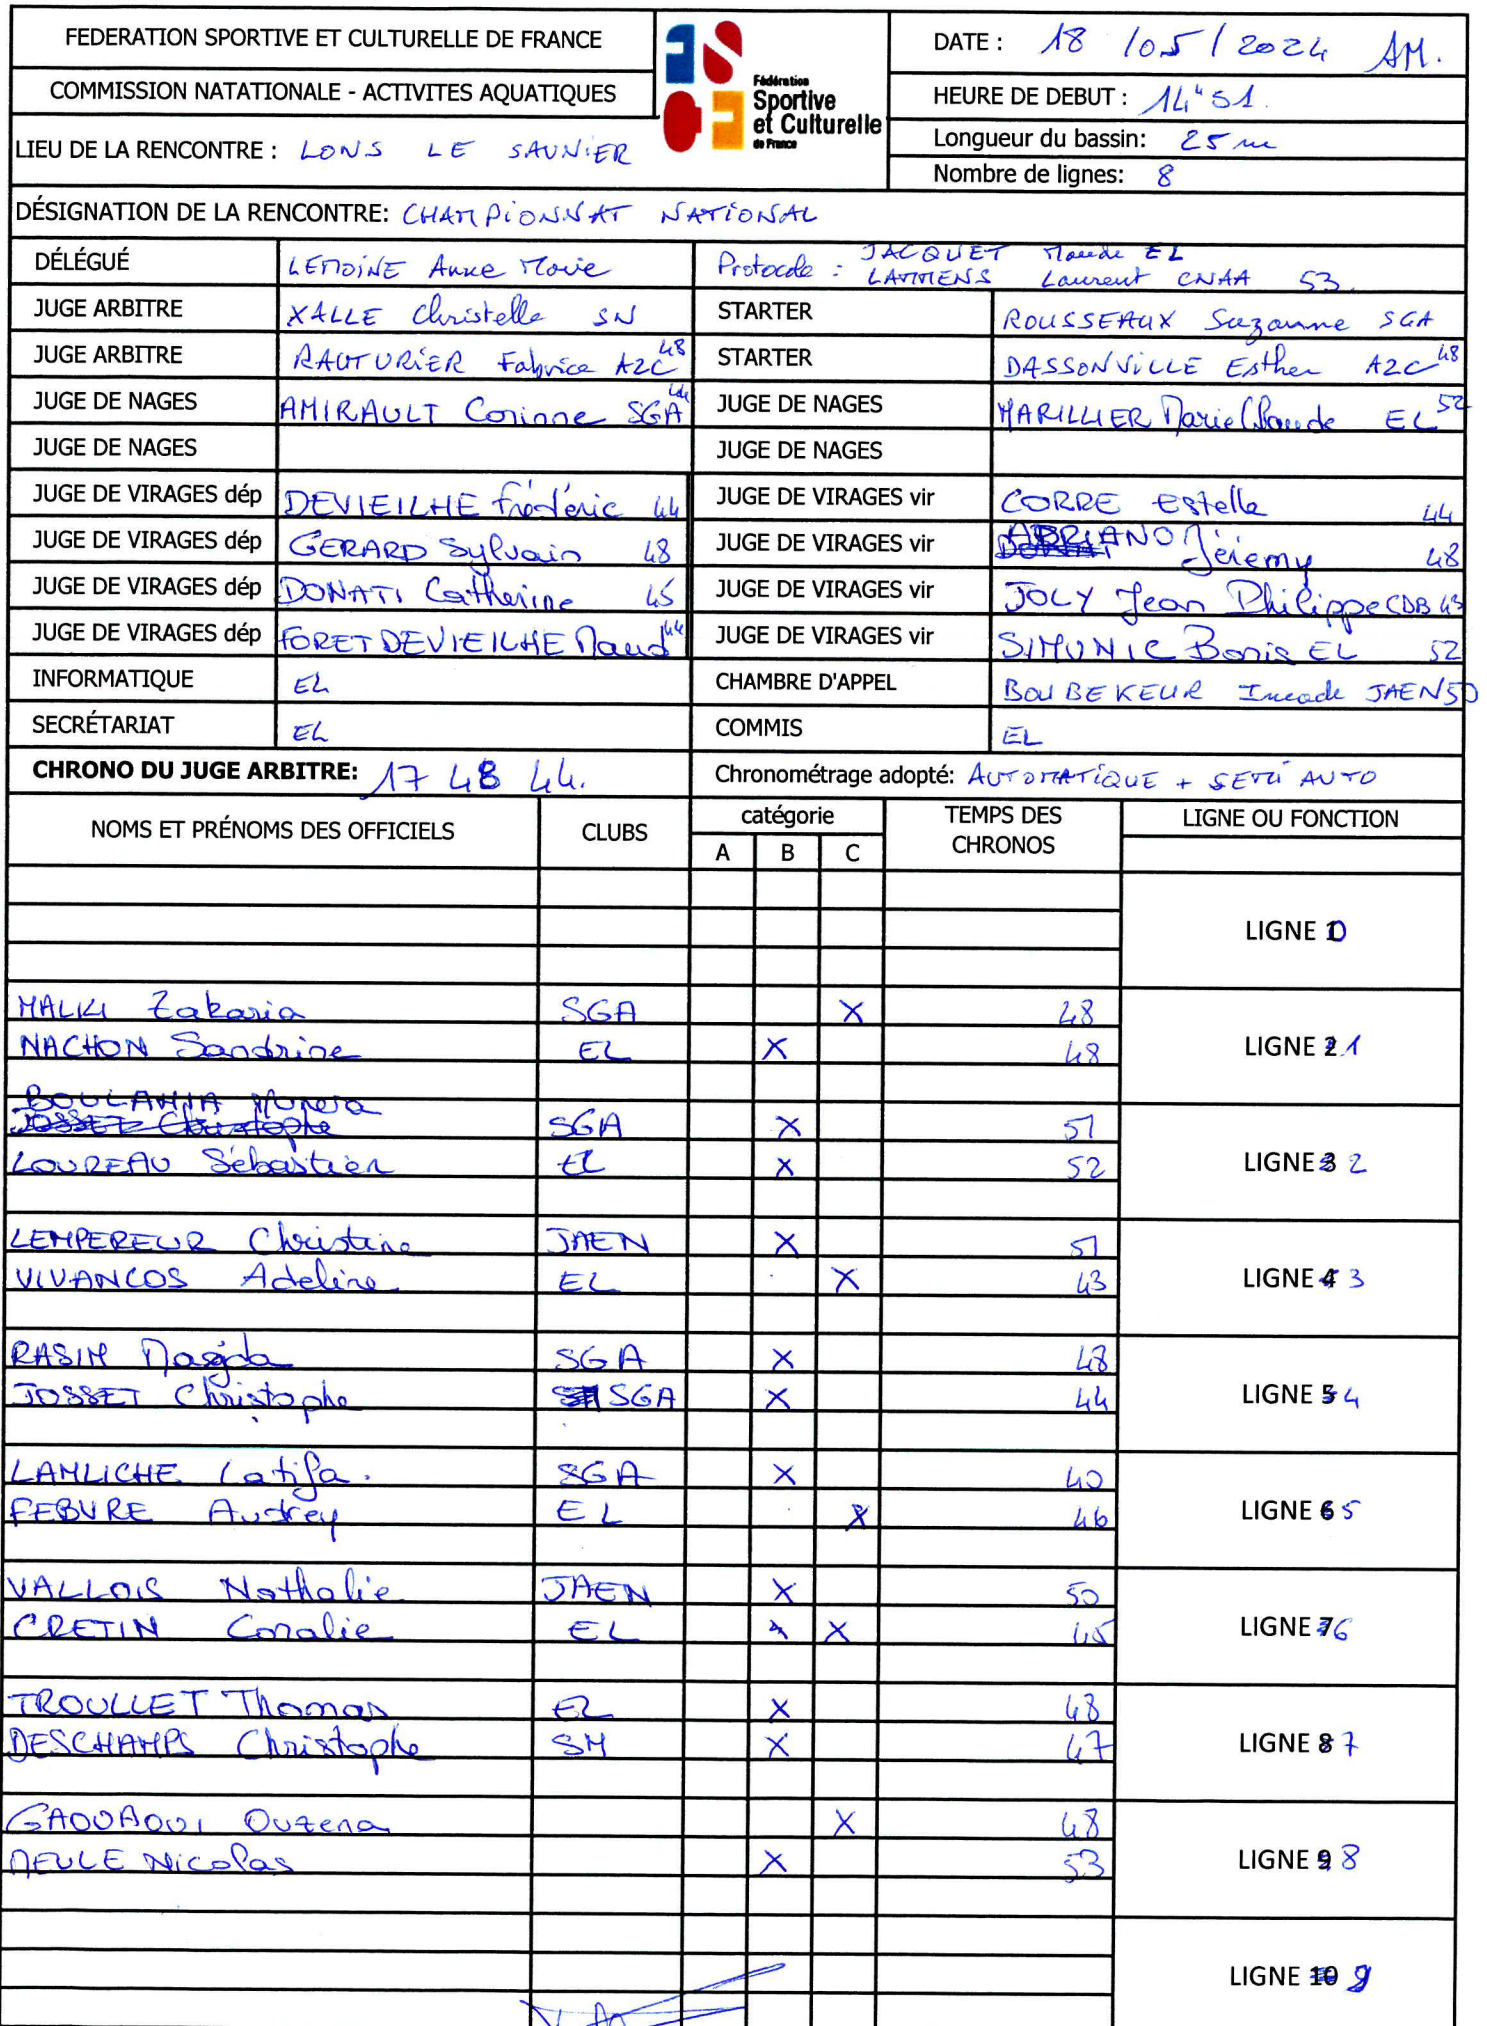 FEDERATION SPORTIVE ET CULTURELLE DE FRANCE
COMMISSION NATATIONALE - ACTIVITES AQUATIQUES
LIEU DE LA RENCONTRE : LONS LE SAUNIER
Fédération
Sportive
et Culturelle
de France
DATE : 18 /05/2024 AM.
HEURE DE DEBUT : 14h51.
Longueur du bassin: 25 m
Nombre de lignes: 8
DÉSIGNATION DE LA RENCONTRE: CHAMPIONNAT NATIONAL
DÉLÉGUÉ LEMOINE Anne Marie Protocole : JACQUET Maude EL
LAMMENS Laurent CNAA 53
JUGE ARBITRE XALLE Christelle SN STARTER ROUSSEAUX Suzanne SGA
JUGE ARBITRE RAUTURIER Fabrice A2C 48 STARTER DASSONVILLE Esther A2C 48
JUGE DE NAGES AMIRAULT Corinne SGA 44 JUGE DE NAGES MARILLIER Marie Claude EL 52
JUGE DE NAGES JUGE DE NAGES
JUGE DE VIRAGES dép DEVIEILHE Frédéric 44 JUGE DE VIRAGES vir CORRE Estelle 44
JUGE DE VIRAGES dép GERARD Sylvain 48 JUGE DE VIRAGES vir ABRIANO Jérémy 48
JUGE DE VIRAGES dép DONATI Catherine 45 JUGE DE VIRAGES vir JOLY Jean Philippe CDB 43
JUGE DE VIRAGES dép FORET DEVIEILHE Maud 44 JUGE DE VIRAGES vir SIMUNIC Boris EL 52
INFORMATIQUE EL CHAMBRE D'APPEL BOUBEKEUR JAEN 50
SECRÉTARIAT EL COMMIS EL
CHRONO DU JUGE ARBITRE: 17 48 44. Chronométrage adopté: AUTOMATIQUE + SEMI AUTO
NOMS ET PRÉNOMS DES OFFICIELS CLUBS catégorie TEMPS DES CHRONOS LIGNE OU FONCTION
A B C
LIGNE 0
MALKI Zakaria SGA X 48
NACHON Sandrine EL X 48 LIGNE 1
BOULAHIA
JOSSET Christophe SGA X 51
LOUREAU Sébastien EL X 52 LIGNE 2
LEMPEREUR Christine JAEN X 51
VIVANCOS Adeline EL X 43 LIGNE 3
RASIM Magida SGA X 48
JOSSET Christophe SGA X 44 LIGNE 4
LAMLICHE Latifa. SGA X 40
FEBVRE Audrey EL X 46 LIGNE 5
VALLOIS Nathalie JAEN X 50
CRETIN Coralie EL X 45 LIGNE 6
TROULLET Thomas EL X 48
DESCHAMPS Christophe SM X 47 LIGNE 7
GAOUAOUI Ouzena X 48
MEULE Nicolas X 53 LIGNE 8
LIGNE 9